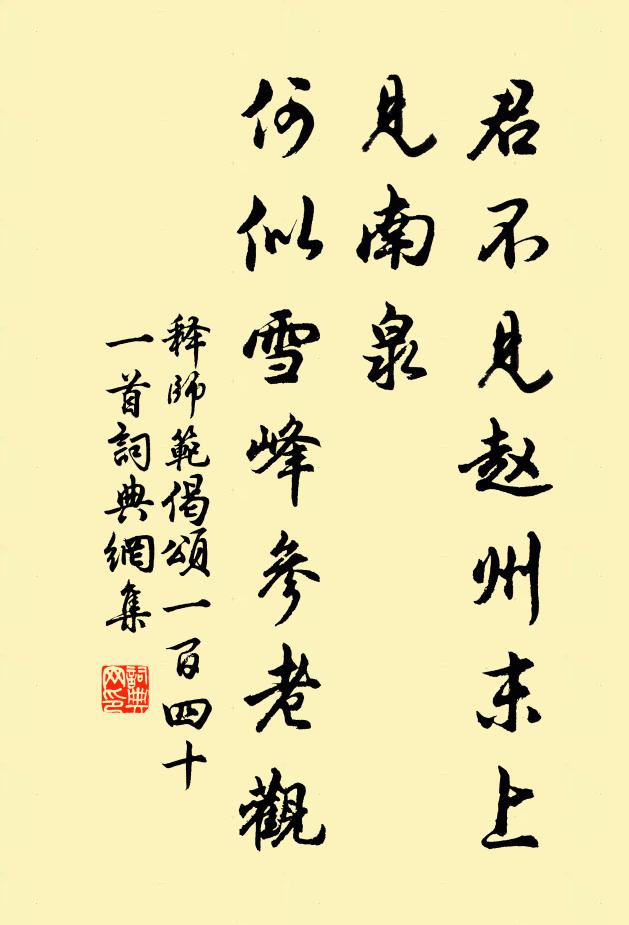 君不见赵州末上
见南泉
何似雪峰参老觀
释師範偈頌一百四十
一首詞典網集
詞典网印